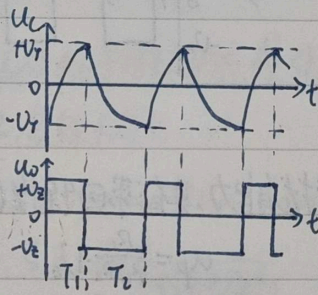 Uc
+UT
0
t
-UT
Uo
+UZ
0
t
-UZ
T1
T2